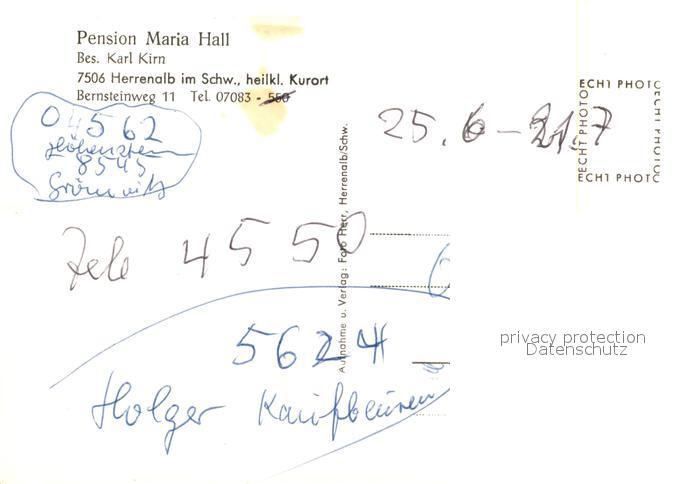 Pension Maria Hall
Bes. Karl Kirn
7506 Herrenalb im Schw., heilkl. Kurort
Bernsteinweg 11 Tel. 07083 - 550
04562
8545
25.6-21.7
Tele 4550
5624
Holger Kaufbeuren
Aufnahme u. Verlag: Foto Herr, Herrenalb/Schw.
ECHT PHOTO
ECHT PHOTO
ECHT PHOTO
ECHT PHOTO
privacy protection
Datenschutz